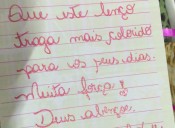 Que este lenço
traga mais colorido
para os seus dias.
Muita força
Deus abençoe